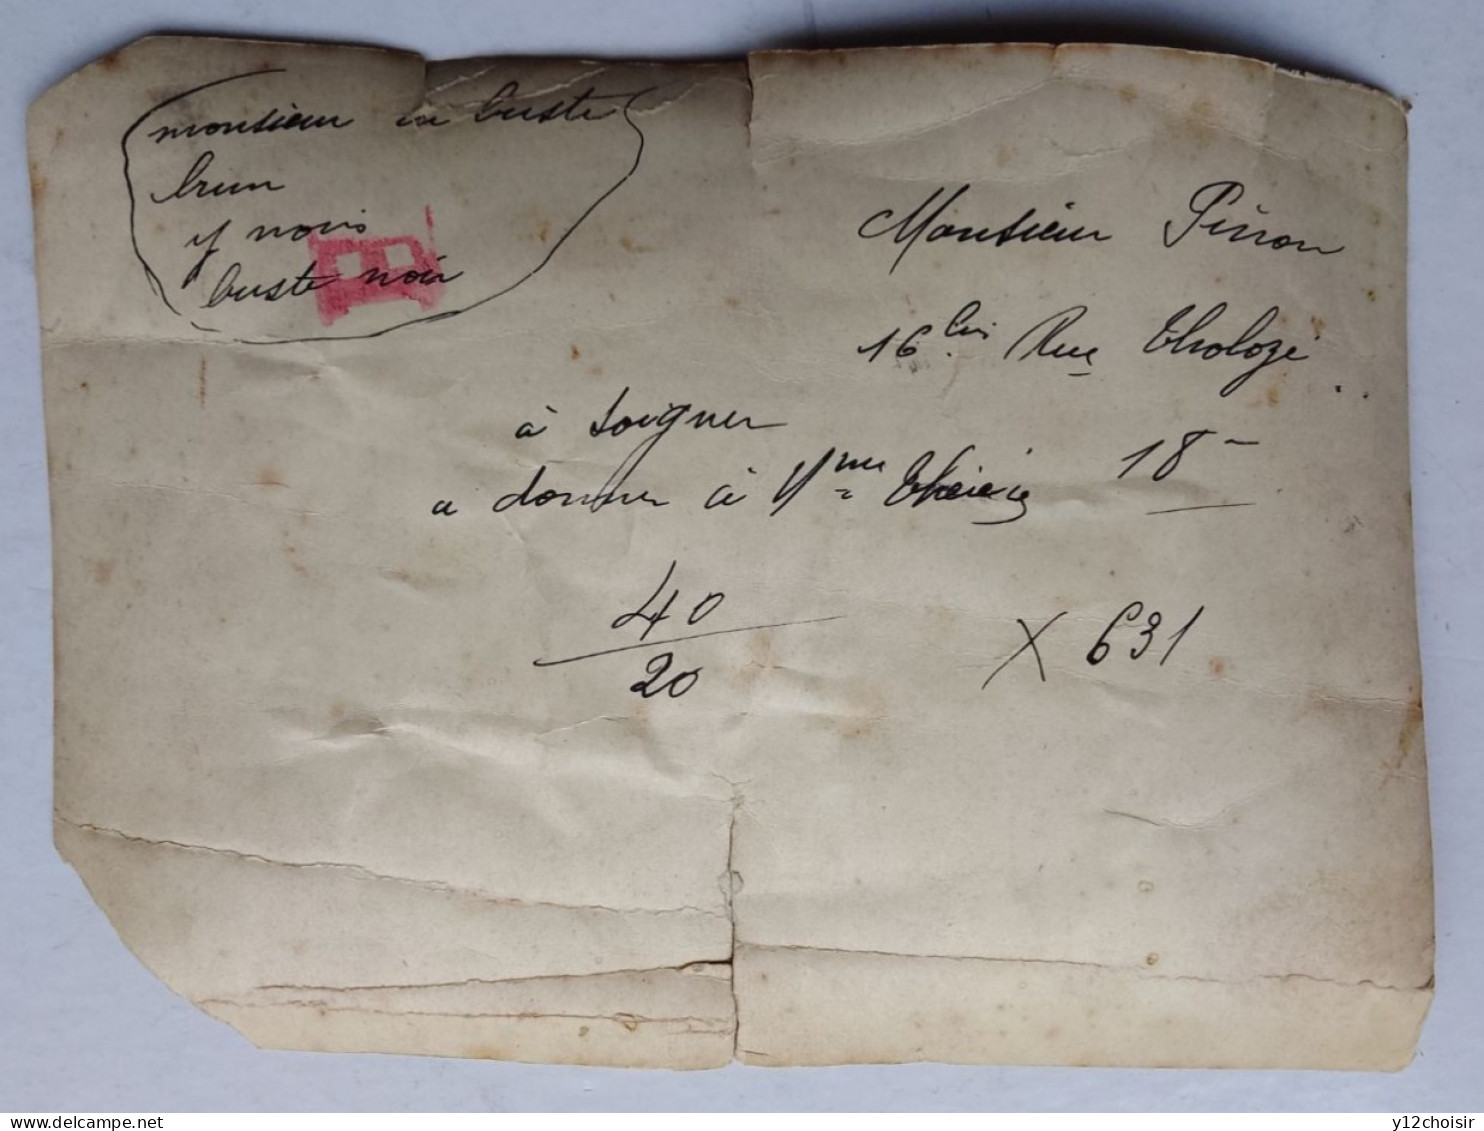 monsieur en buste
brun
y noirs
buste noir
Monsieur Pinon
16 bis Rue Tholozé
à soigner
a donner à Mme 18-
40
20
X 631
website:delcampe.net
y12choisir